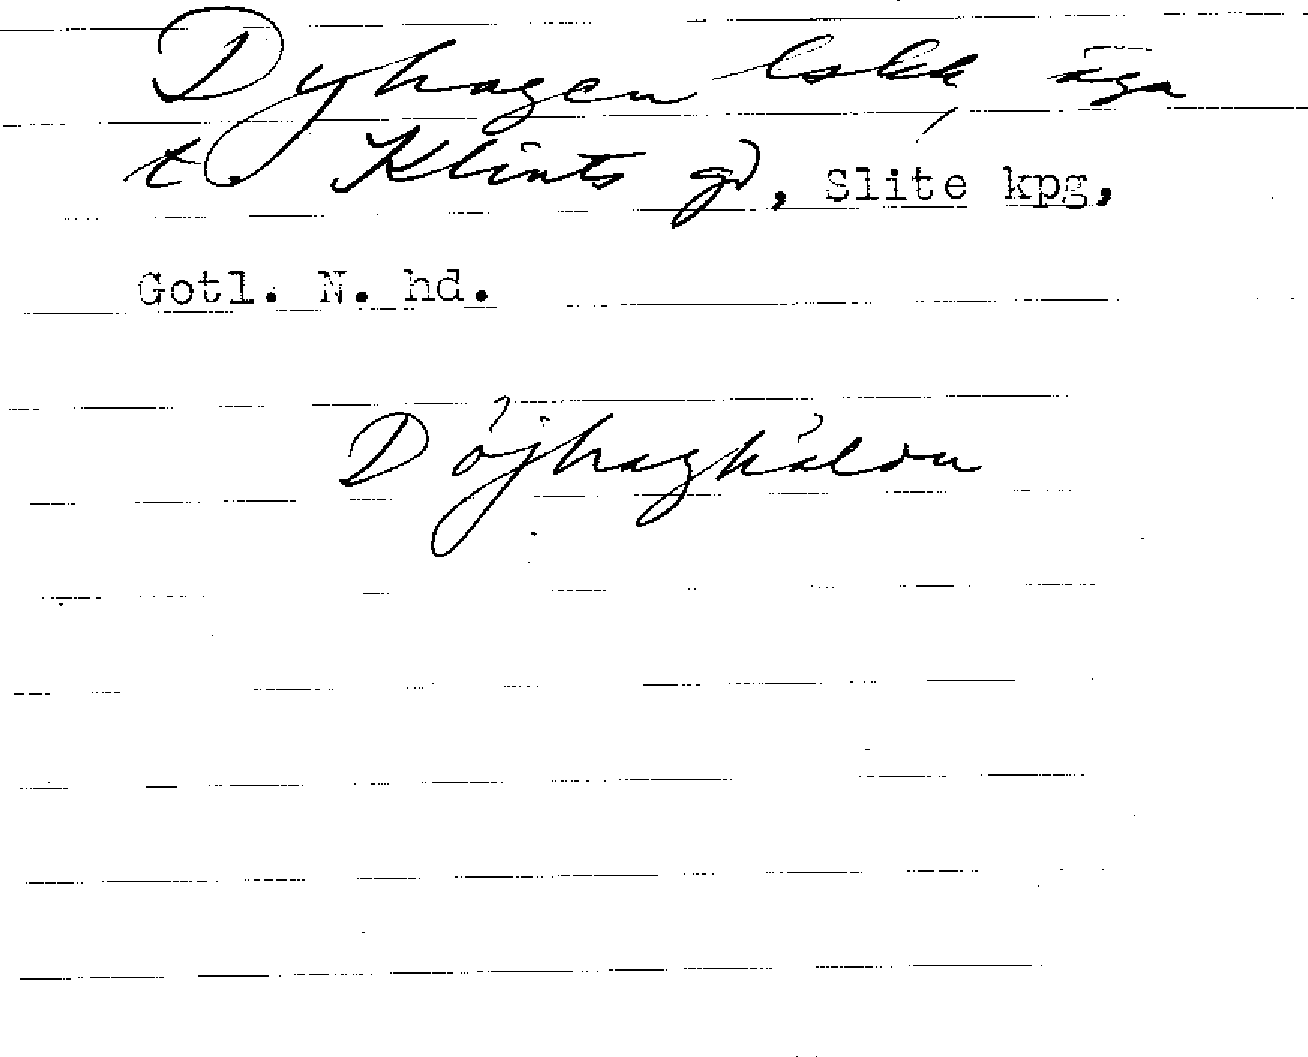 Dyhagen äga
t. Klints gd, Slite kpg,
Gotl. N. hd.